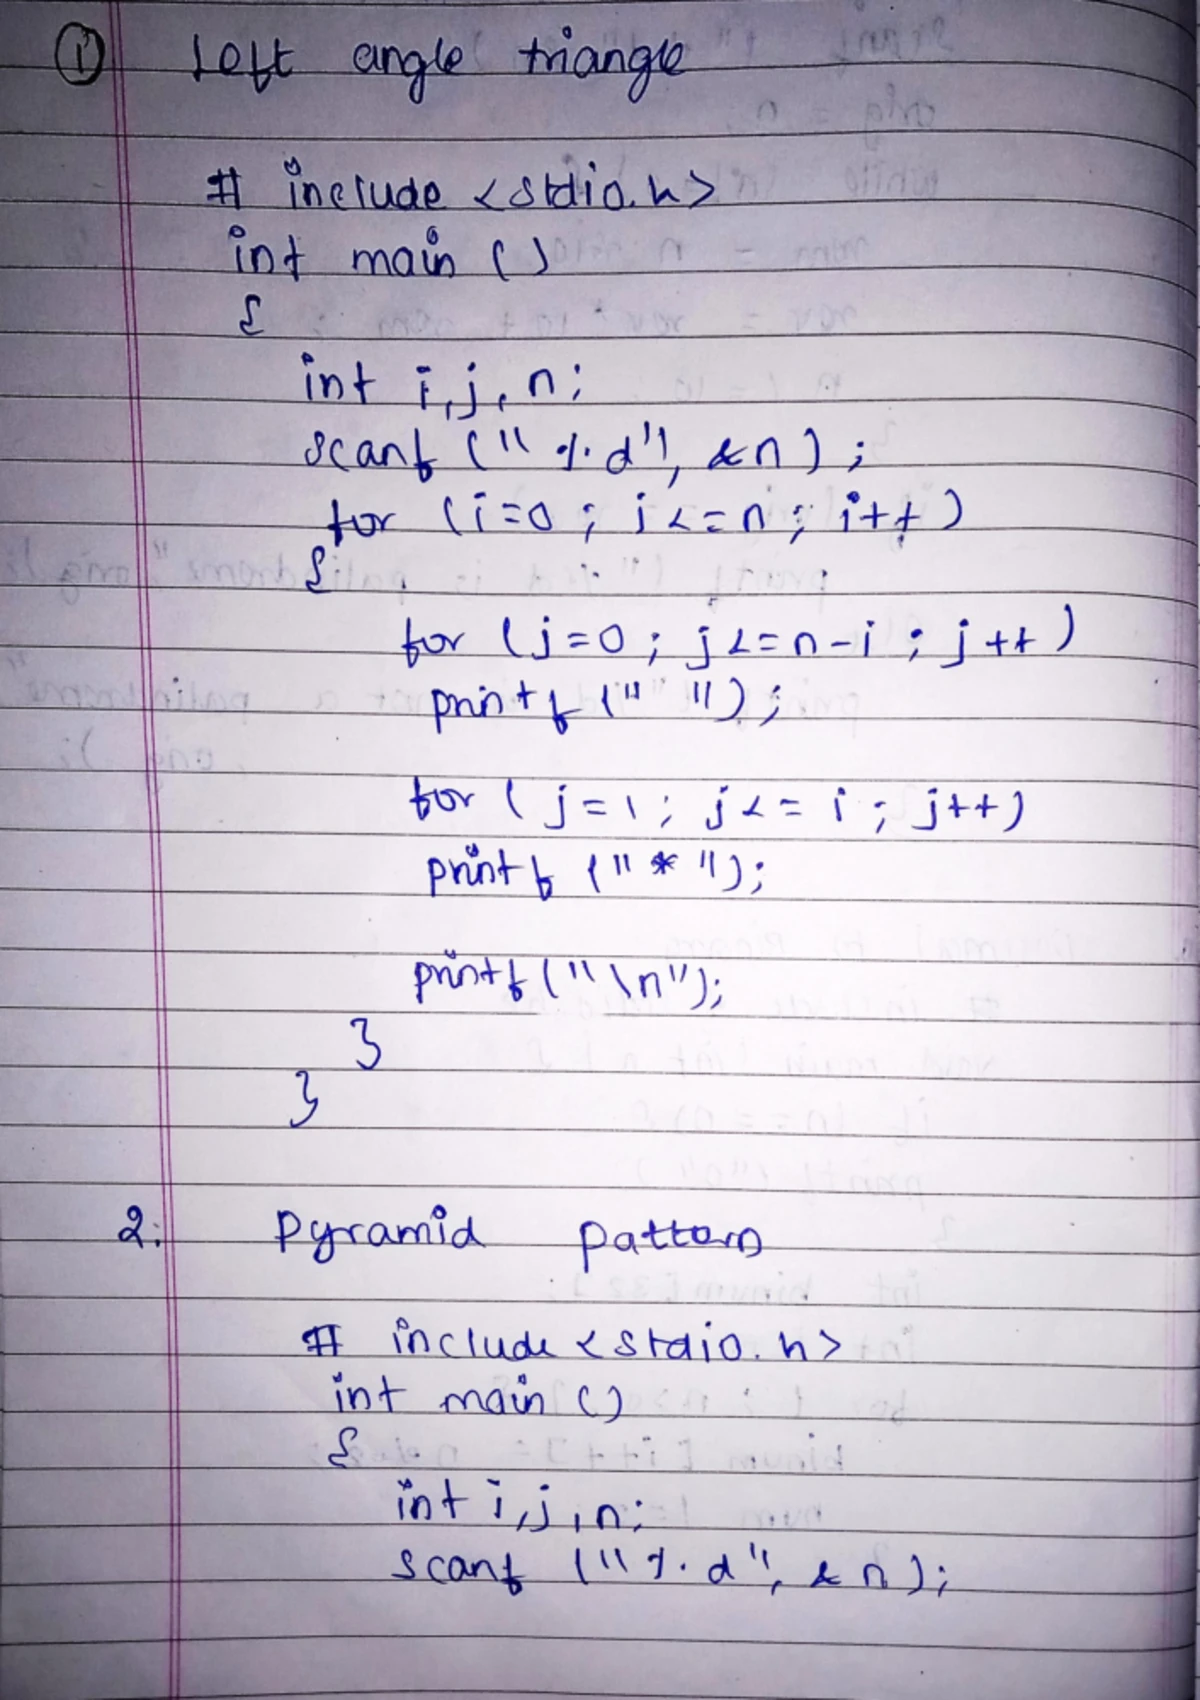 ① Left angle triangle
# include <stdio.h>
int main ()
{
int i,j,n;
scanf ("%d", &n);
for (i=0; i<=n; i++)
{
for (j=0; j<=n-i; j++)
printf (" ");
for (j=1; j<=i; j++)
printf ("*");
printf("\n");
}
}
2. Pyramid pattern
# include <stdio.h>
int main ()
{
int i,j,n;
scanf ("%d", &n);